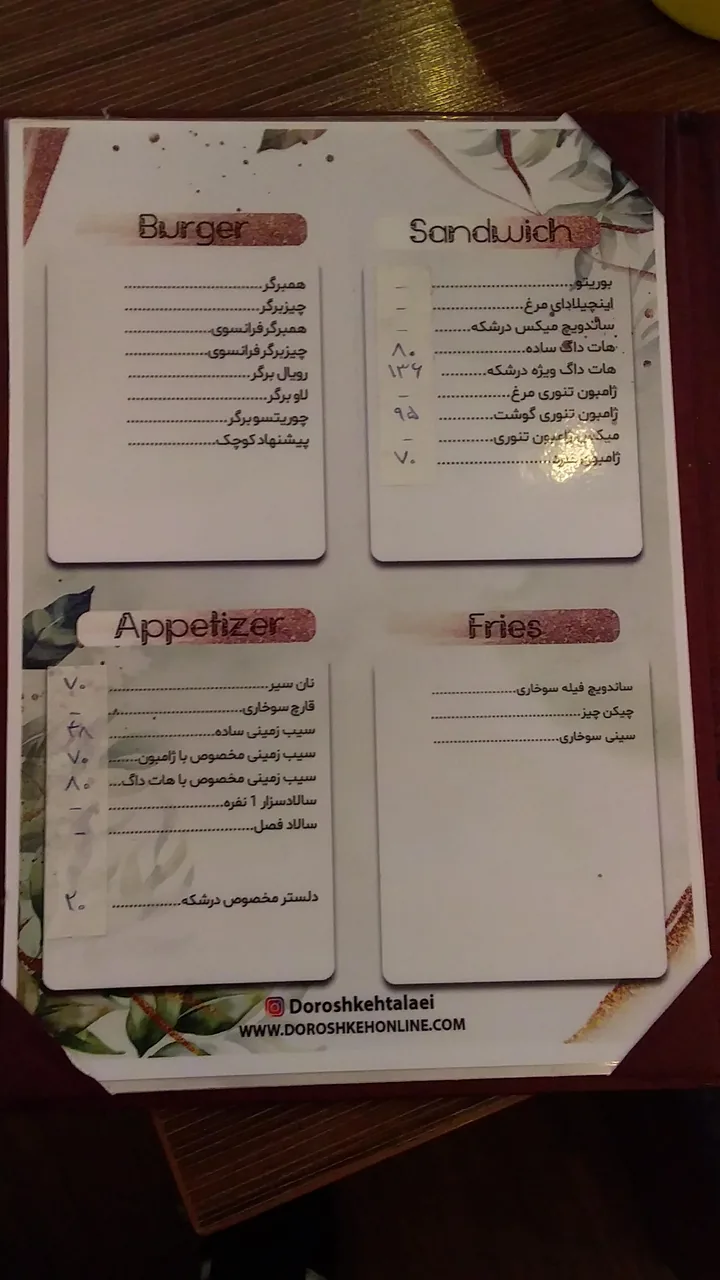 Burger
همبرگر
چیزبرگر
همبرگر فرانسوی
چیزبرگر فرانسوی
رویال برگر
لاو برگر
چوریتسو برگر
پیشنهاد کوچک
Sandwich
بوریتو _
اینچیلادای مرغ _
ساندویچ میکس درشکه _
هات داگ ساده ۸۰
هات داگ ویژه درشکه ۱۳۶
ژامبون تنوری مرغ _
ژامبون تنوری گوشت ۹۵
میکس ژامبون تنوری _
ژامبون ۷۰
Appetizer
نان سیر ۷۰
قارچ سوخاری _
سیب زمینی ساده ۴۸
سیب زمینی مخصوص با ژامبون ۷۰
سیب زمینی مخصوص با هات داگ ۸۰
سالادسزار 1 نفره _
سالاد فصل _
دلستر مخصوص درشکه ۲۰
Fries
ساندویچ فیله سوخاری
چیکن چیز
سینی سوخاری
Doroshkehtalaei
WWW.DOROSHKEHONLINE.COM